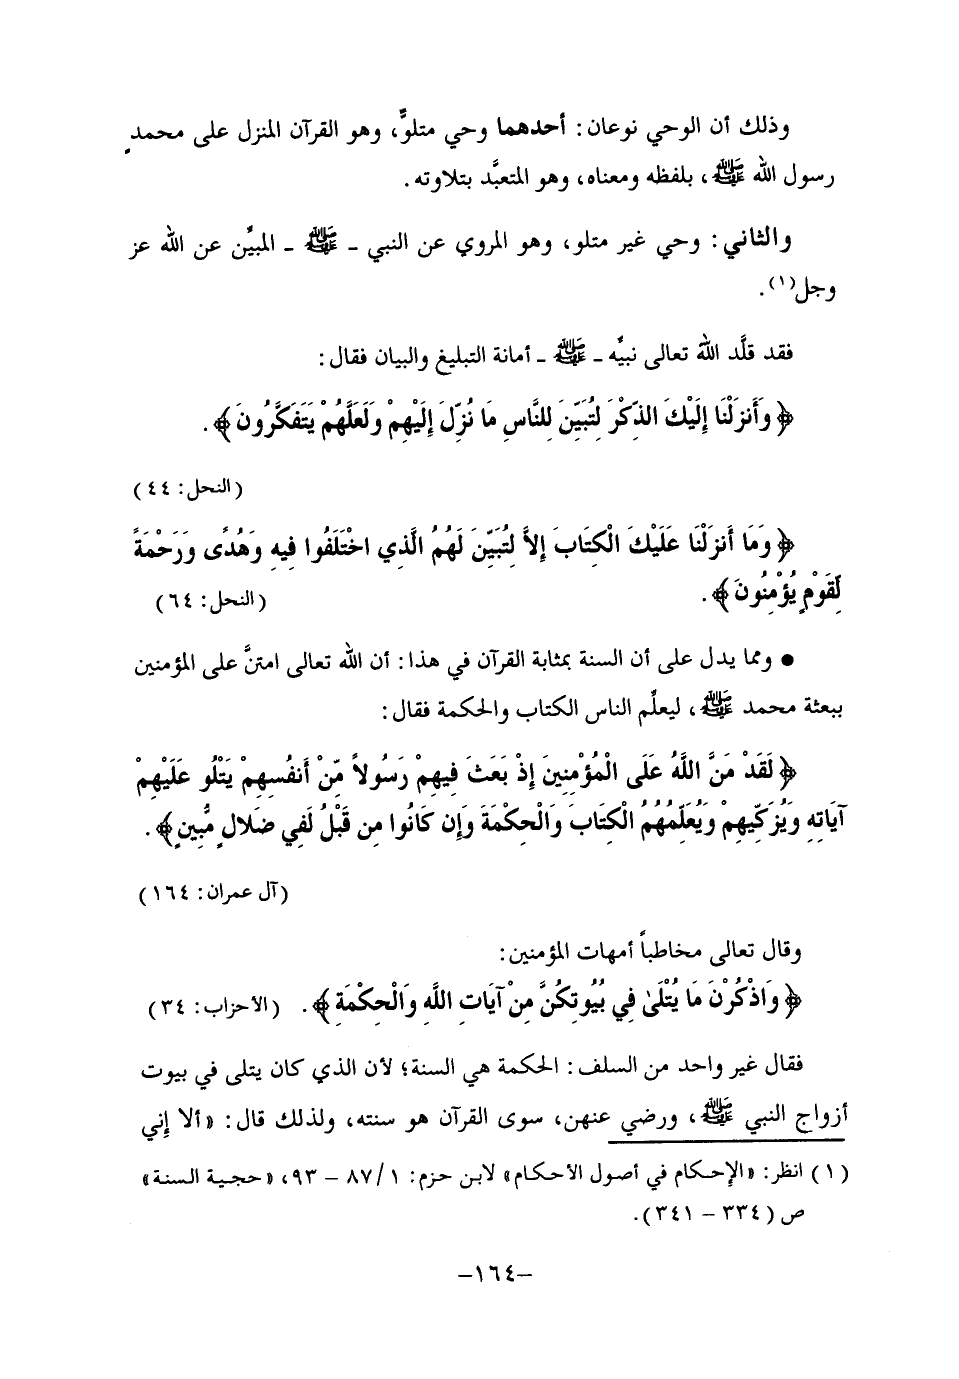 وذلك أن الوحي نوعان: أحدهما وحي متلوٌّ، وهو القرآن المنزل على محمدٍ
رسول الله ﷺ، بلفظه ومعناه، وهو المتعبَّد بتلاوته.
والثاني: وحي غير متلو، وهو المروي عن النبي ـ ﷺ ـ المبيِّن عن الله عز
وجل(١).
فقد قلَّد اللهُ تعالى نبيَّه ـ ﷺ ـ أمانة التبليغ والبيان فقال:
﴿وَأَنزَلْنَا إِلَيْكَ الذِّكْرَ لِتُبَيِّنَ لِلنَّاسِ مَا نُزِّلَ إِلَيْهِمْ وَلَعَلَّهُمْ يَتَفَكَّرُونَ﴾.
(النحل: ٤٤)
﴿وَمَا أَنزَلْنَا عَلَيْكَ الْكِتَابَ إِلاَّ لِتُبَيِّنَ لَهُمُ الَّذِي اخْتَلَفُوا فِيهِ وَهُدًى وَرَحْمَةً
لِّقَوْمٍ يُؤْمِنُونَ﴾. (النحل: ٦٤)
● ومما يدل على أن السنة بمثابة القرآن في هذا: أن الله تعالى امتنَّ على المؤمنين
ببعثة محمد ﷺ، ليعلِّم الناس الكتاب والحكمة فقال:
﴿لَقَدْ مَنَّ اللَّهُ عَلَى الْمُؤْمِنِينَ إِذْ بَعَثَ فِيهِمْ رَسُولاً مِّنْ أَنفُسِهِمْ يَتْلُو عَلَيْهِمْ
آيَاتِهِ وَيُزَكِّيهِمْ وَيُعَلِّمُهُمُ الْكِتَابَ وَالْحِكْمَةَ وَإِن كَانُوا مِن قَبْلُ لَفِي ضَلالٍ مُّبِينٍ﴾.
(آل عمران: ١٦٤)
وقال تعالى مخاطباً أمهات المؤمنين:
﴿وَاذْكُرْنَ مَا يُتْلَىٰ فِي بُيُوتِكُنَّ مِنْ آيَاتِ اللَّهِ وَالْحِكْمَةِ﴾. (الأحزاب: ٣٤)
فقال غير واحد من السلف: الحكمة هي السنة؛ لأن الذي كان يتلى في بيوت
أزواج النبي ﷺ، ورضي عنهن، سوى القرآن هو سنته، ولذلك قال: «ألا إني
(١) انظر: «الإحكام في أصول الأحكام» لابن حزم: ١/٨٧ – ٩٣، «حجية السنة»
ص (٣٣٤ – ٣٤١).
–١٦٤–